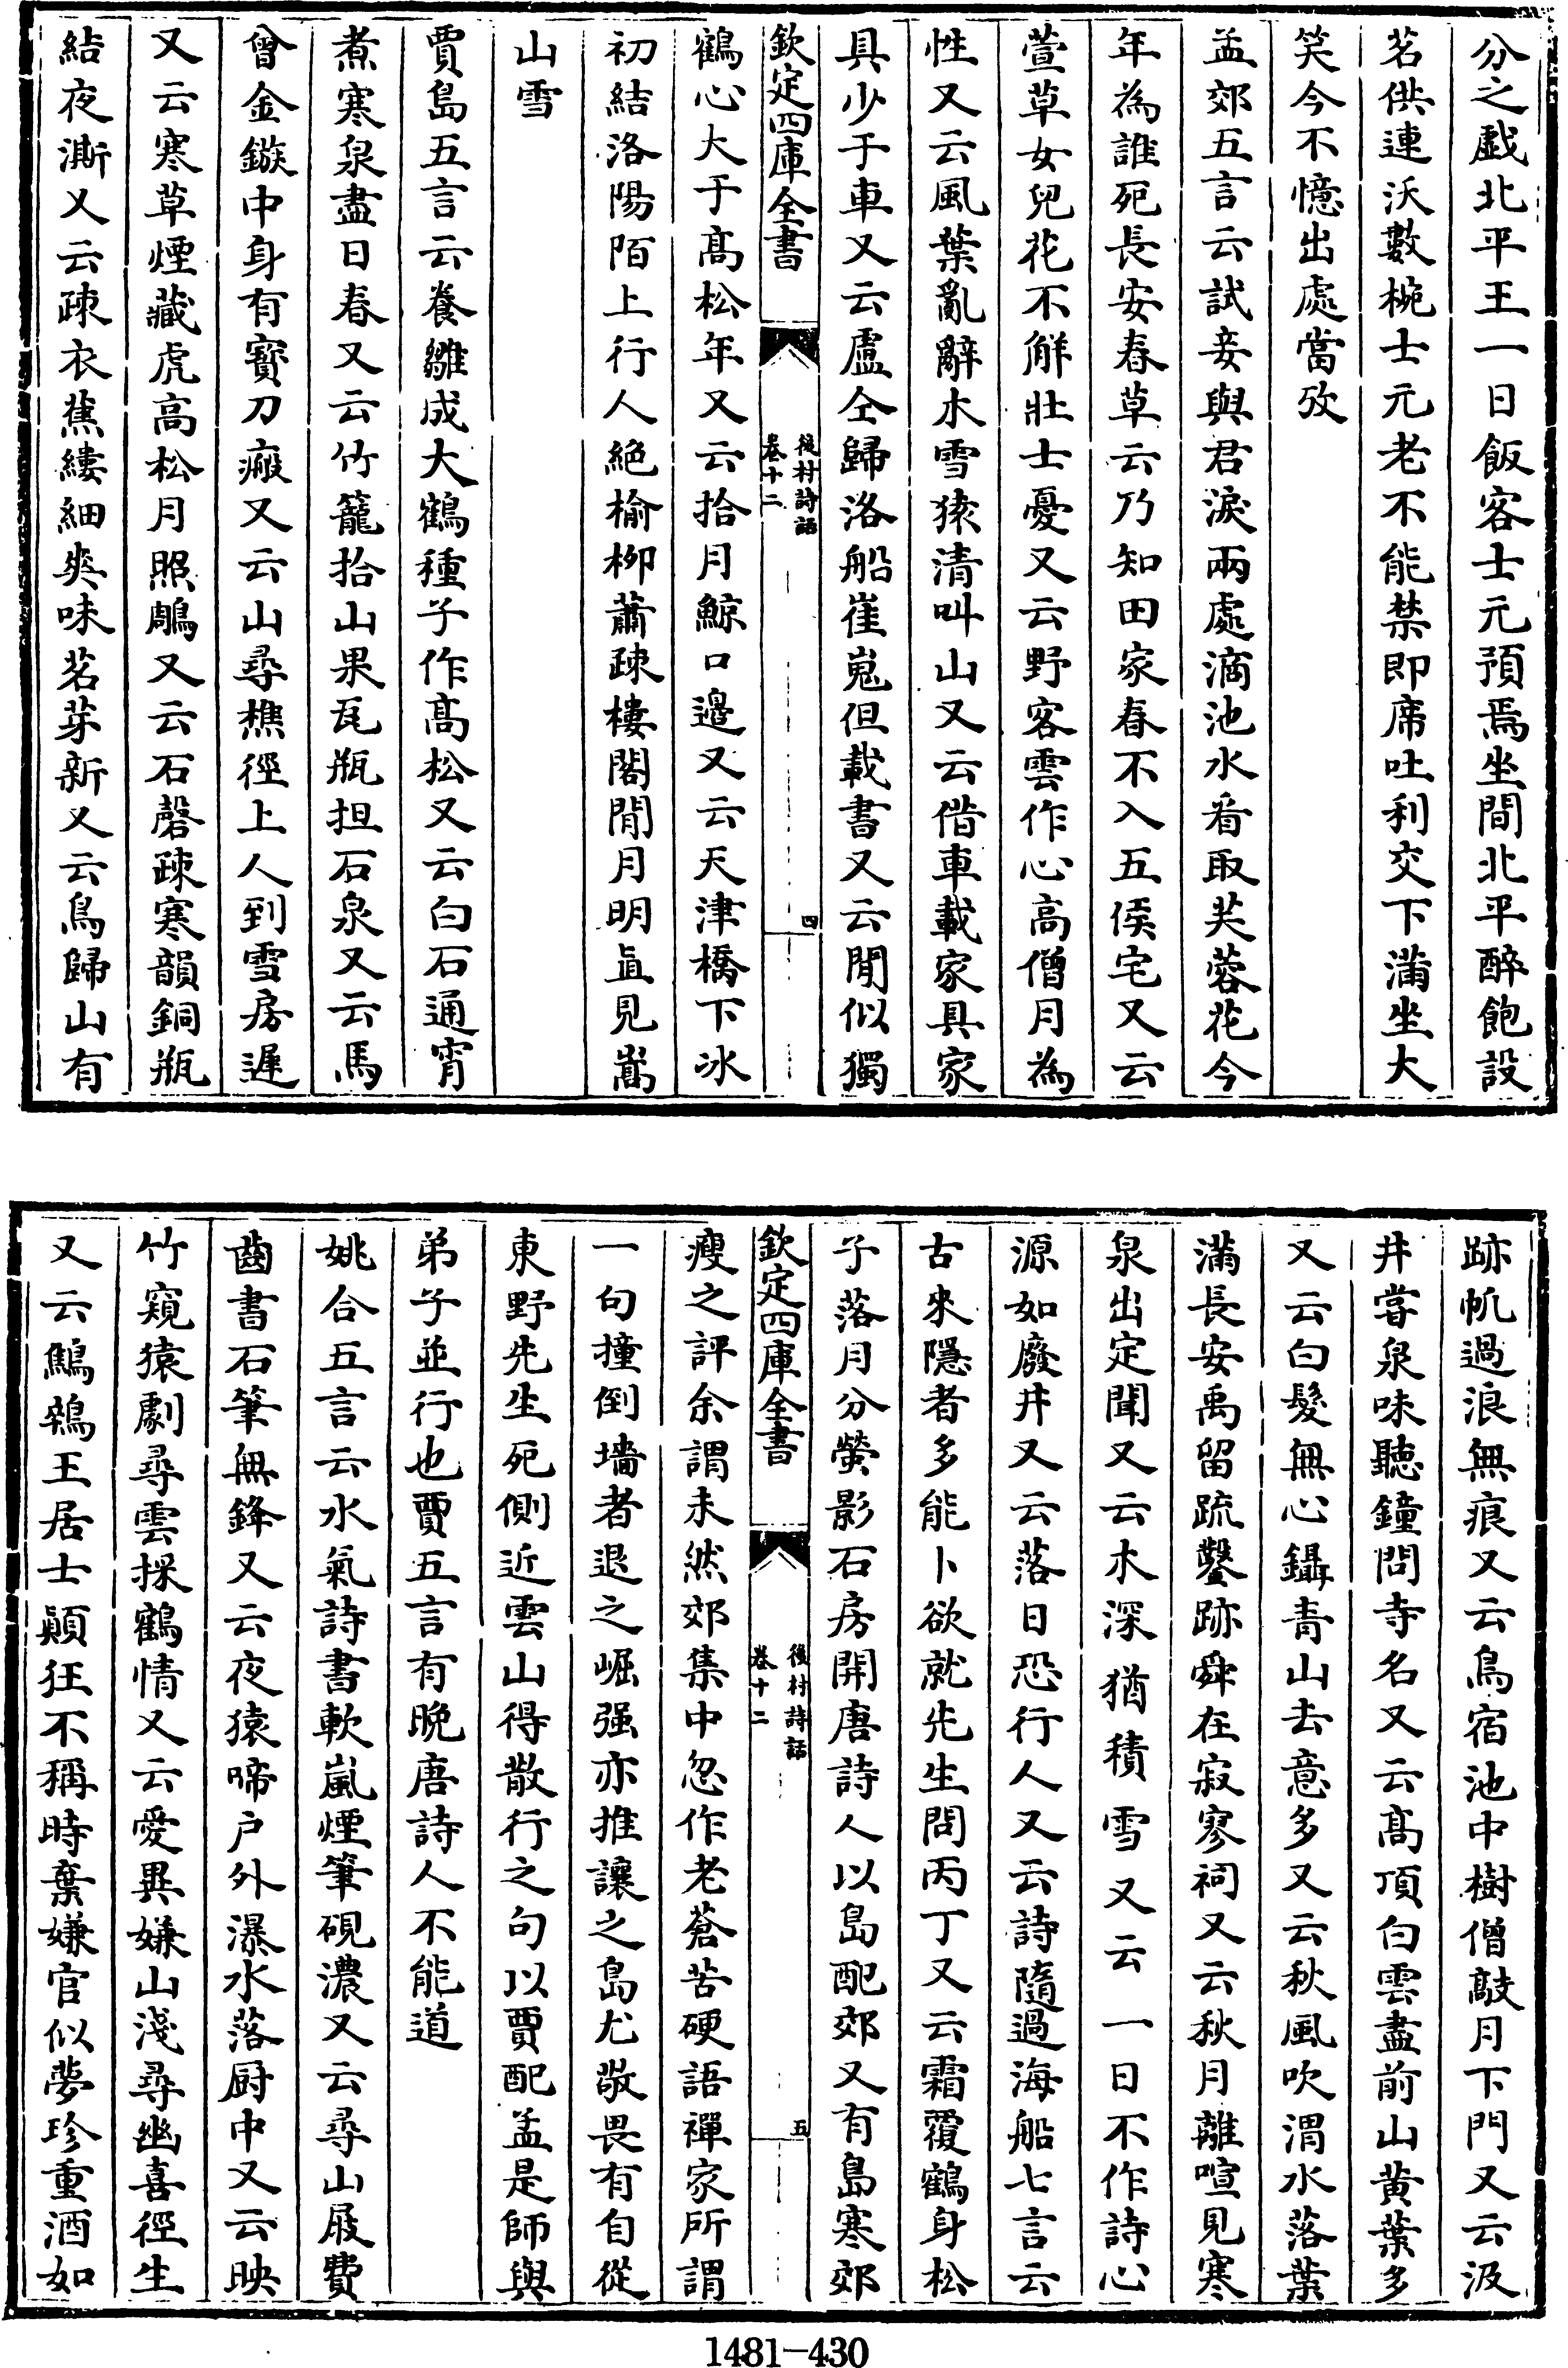 分之戲北平王一日飯客士元預焉坐間北平醉飽設
茗供連沃數椀士元老不能禁即席吐利交下滿坐大
笑今不憶出處當攷
孟郊五言云試妾與君淚兩處滴池水看取芙蓉花今
年為誰死長安春草云乃知田家春不入五侯宅又云
萱草女兒花不解壯士憂又云野客雲作心高僧月為
性又云風葉亂辭木雪猿清叫山又云借車載家具家
具少于車又云盧仝歸洛船崔嵬但載書又云閒似獨
欽定四庫全書
後村詩話
卷十二
四
鶴心大于高松年又云拾月鯨口邊又云天津橋下冰
初結洛陽陌上行人絕榆柳蕭疎樓閣閒月明直見嵩
山雪
賈島五言云養雛成大鶴種子作高松又云白石通宵
煮寒泉盡日舂又云竹籠拾山果瓦瓶担石泉又云馬
曾金鏃中身有寶刀瘢又云山尋樵徑上人到雪房遲
又云寒草煙藏虎高松月照鵰又云石磬疎寒韻銅瓶
結夜澌又云疎衣蕉縷細爽味茗芽新又云鳥歸山有
跡帆過浪無痕又云鳥宿池中樹僧敲月下門又云汲
井嘗泉味聽鐘問寺名又云高頂白雲盡前山黃葉多
又云白髮無心鑷青山去意多又云秋風吹渭水落葉
滿長安禹留疏鑿跡舜在寂寥祠又云秋月離喧見寒
泉出定聞又云木深猶積雪又云一日不作詩心
源如廢井又云落日恐行人又云詩隨過海船七言云
古來隱者多能卜欲就先生問丙丁又云霜覆鶴身松
子落月分螢影石房開唐詩人以島配郊又有島寒郊
欽定四庫全書
後村詩話
卷十二
五
瘦之評余謂未然郊集中忽作老蒼苦硬語禪家所謂
一句撞倒墻者退之崛强亦推讓之島尤敬畏有自從
東野先生死側近雲山得散行之句以賈配孟是師與
弟子並行也賈五言有晚唐詩人不能道
姚合五言云水氣詩書軟嵐煙筆硯濃又云尋山屐費
齒書石筆無鋒又云夜猿啼户外瀑水落厨中又云映
竹窺猿劇尋雲採鶴情又云愛異嫌山淺尋幽喜徑生
又云鷦鷯王居士顛狂不稱時棄嫌官似夢珍重酒如
1481-430